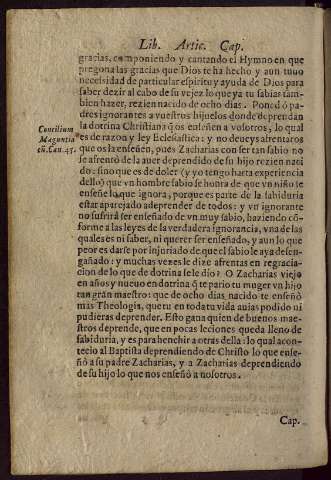 Lib. Artic. Cap.
gracias, componiendo y cantando el Hymno en que
pregona las gracias que Dios te ha hecho y aun tuuo
necessidad de particular espiritu y ayuda de Dios para
saber dezir al cabo de su vejez lo que ya tu sabias tam-
bien hazer, rezien nacido de ocho dias. Poned ò pa-
dres ignorantes a vuestros hijuelos donde deprendan
la dotrina Christiana q̃ os enseñen a vosotros, lo qual
Concilium
Maguntia
cũ. Can. 45.
es de razon y ley Eclesiastica: y no deueys afrentaros
que os la enseñen, pues Zacharias con ser tan sabio no
se afrentò de la auer deprendido de su hijo rezien naci
do: sino que es de doler (y yo tengo harta experiencia
dello) que vn hombre sabio se honra de que vn niño le
enseñe lo que ignora, porque es parte de la sabiduria
estar aparejado a deprender de todos: y vn ignorante
no sufrirà ser enseñado de vn muy sabio, haziendo cõ-
forme a las leyes de la verdadera ignorancia, vna de las
quales es ni saber, ni querer ser enseñado, y aun lo que
peor es darse por injuriado de que el sabio le aya desen-
gañado: y muchas vezes le dize afrentas en regracia-
cion de lo que de dotrina se le dio? O Zacharias viejo
en años y nueuo en dotrina q̃ te pario tu muger vn hijo
tan gran maestro: que de ocho dias nacido te enseñò
mas Theologia, que tu en toda tu vida auias podido ni
pudieras deprender. Esto gana quien de buenos mae-
stros deprende, que en pocas leciones queda lleno de
sabiduria, y es para henchir a otras della: lo qual acon-
tecio al Baptista deprendiendo de Christo lo que ense-
ñò a su padre Zacharias, y a Zacharias deprendiendo
de su hijo lo que nos enseñò a nosotros.
Cap.